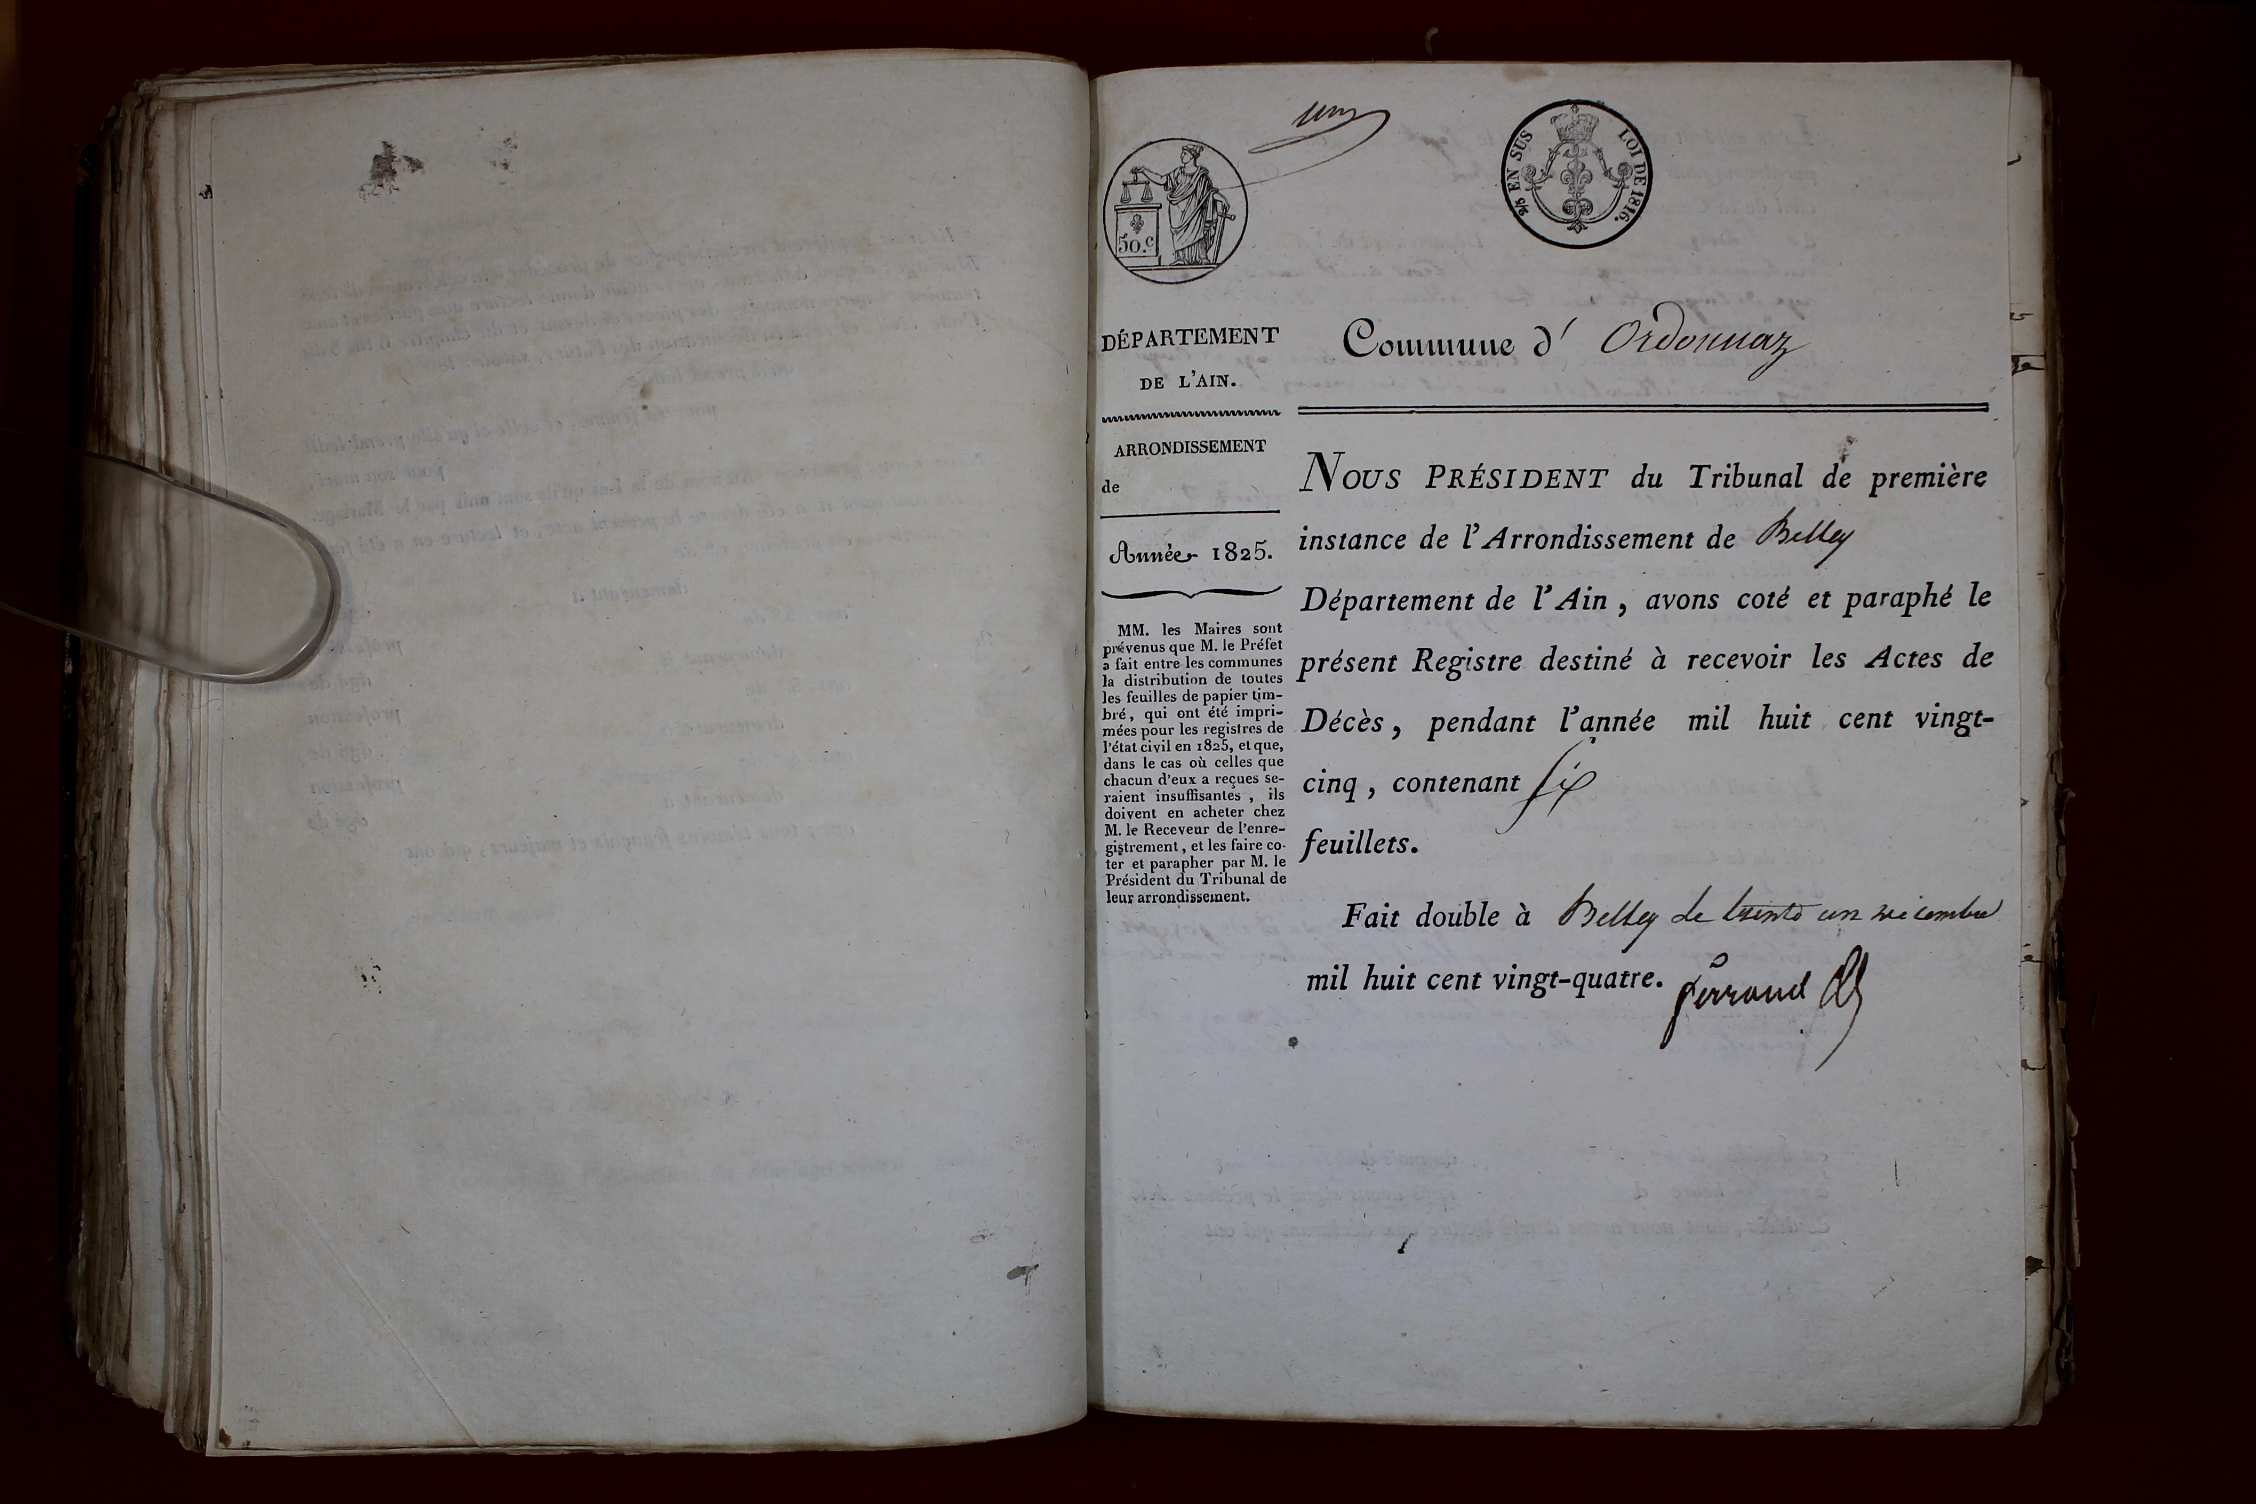 un
50.c
2/5 EN SUS
LOI DE 1816.
DÉPARTEMENT
DE L'AIN.
ARRONDISSEMENT
de
Année 1825.
MM. les Maires sont
prévenus que M. le Préfet
a fait entre les communes
la distribution de toutes
les feuilles de papier tim-
bré, qui ont été impri-
mées pour les registres de
l'état civil en 1825, et que,
dans le cas où celles que
chacun d'eux a reçues se-
raient insuffisantes, ils
doivent en acheter chez
M. le Receveur de l'enre-
gistrement, et les faire co-
ter et parapher par M. le
Président du Tribunal de
leur arrondissement.
Commune d' Ordonnaz
NOUS PRÉSIDENT du Tribunal de première
instance de l'Arrondissement de Belley
Département de l'Ain, avons coté et paraphé le
présent Registre destiné à recevoir les Actes de
Décès, pendant l'année mil huit cent vingt-
cinq, contenant six
feuillets.
Fait double à Belley le trente un décembre
mil huit cent vingt-quatre.